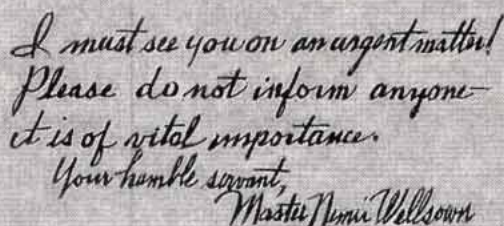 I must see you on an urgent matter!
Please do not inform anyone-
it is of vital importance.
Your humble servant,
Master Nemir Wellsown